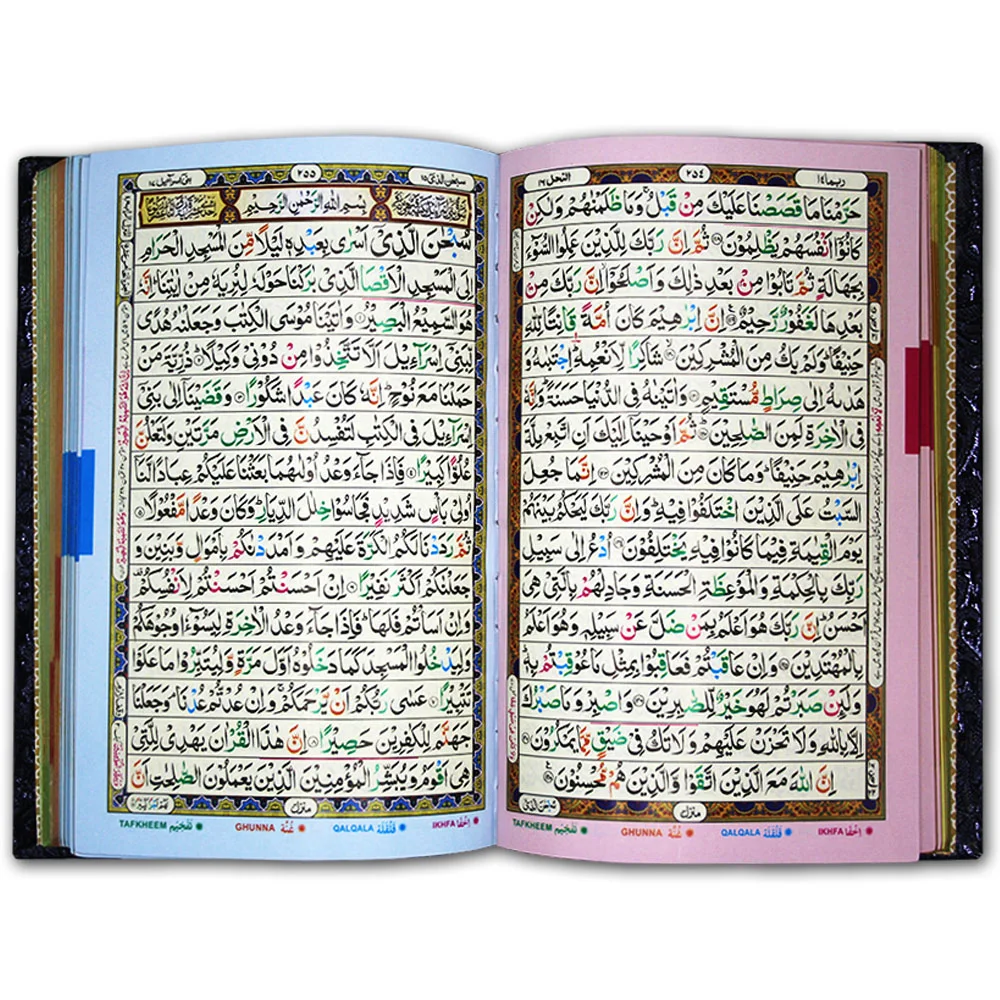 ربما ١٤ ٢٥٤ النحل ١٦
حَرَّمْنَا مَا قَصَصْنَا عَلَيْكَ مِنْ قَبْلُ ۚ وَمَا ظَلَمْنٰهُمْ وَلٰكِنْ
كَانُوْۤا اَنْفُسَهُمْ يَظْلِمُوْنَ ۝ ثُمَّ اِنَّ رَبَّكَ لِلَّذِيْنَ عَمِلُوا السُّوْٓءَ
بِجَهَالَةٍ ثُمَّ تَابُوْا مِنْۢ بَعْدِ ذٰلِكَ وَاَصْلَحُوْۤا اِنَّ رَبَّكَ مِنْۢ
بَعْدِهَا لَغَفُوْرٌ رَّحِيْمٌ ۝ اِنَّ اِبْرٰهِيْمَ كَانَ اُمَّةً قَانِتًا لِّلّٰهِ
حَنِيْفًا ؕ وَلَمْ يَكُ مِنَ الْمُشْرِكِيْنَ ۝ شَاكِرًا لِّاَنْعُمِهٖ ؕ اِجْتَبٰىهُ وَ
هَدٰىهُ اِلٰى صِرَاطٍ مُّسْتَقِيْمٍ ۝ وَاٰتَيْنٰهُ فِى الدُّنْيَا حَسَنَةً ؕ وَاِنَّهٗ
فِى الْاٰخِرَةِ لَمِنَ الصّٰلِحِيْنَ ۝ ثُمَّ اَوْحَيْنَاۤ اِلَيْكَ اَنِ اتَّبِعْ مِلَّةَ
اِبْرٰهِيْمَ حَنِيْفًا ؕ وَمَا كَانَ مِنَ الْمُشْرِكِيْنَ ۝ اِنَّمَا جُعِلَ
السَّبْتُ عَلَى الَّذِيْنَ اخْتَلَفُوْا فِيْهِ ؕ وَاِنَّ رَبَّكَ لَيَحْكُمُ بَيْنَهُمْ
يَوْمَ الْقِيٰمَةِ فِيْمَا كَانُوْا فِيْهِ يَخْتَلِفُوْنَ ۝ اُدْعُ اِلٰى سَبِيْلِ
رَبِّكَ بِالْحِكْمَةِ وَالْمَوْعِظَةِ الْحَسَنَةِ وَجَادِلْهُمْ بِالَّتِىْ هِىَ
اَحْسَنُ ؕ اِنَّ رَبَّكَ هُوَ اَعْلَمُ بِمَنْ ضَلَّ عَنْ سَبِيْلِهٖ وَهُوَ اَعْلَمُ
بِالْمُهْتَدِيْنَ ۝ وَاِنْ عَاقَبْتُمْ فَعَاقِبُوْا بِمِثْلِ مَا عُوْقِبْتُمْ بِهٖ ؕ
وَلَئِنْ صَبَرْتُمْ لَهُوَ خَيْرٌ لِّلصّٰبِرِيْنَ ۝ وَاصْبِرْ وَمَا صَبْرُكَ
اِلَّا بِاللّٰهِ وَلَا تَحْزَنْ عَلَيْهِمْ وَلَا تَكُ فِىْ ضَيْقٍ مِّمَّا يَمْكُرُوْنَ ۝
اِنَّ اللّٰهَ مَعَ الَّذِيْنَ اتَّقَوْا وَّالَّذِيْنَ هُمْ مُّحْسِنُوْنَ ۝
منزل
TAFKHEEM تَفْخِيْم GHUNNA غُنَّه QALQALA قَلْقَلَه IKHFA اِخْفَا
سبحٰن الذی ١٥ ٢٥٥ بنی اسرآءیل ١٧
بِسْمِ اللّٰهِ الرَّحْمٰنِ الرَّحِيْمِ
سُبْحٰنَ الَّذِىْۤ اَسْرٰى بِعَبْدِهٖ لَيْلًا مِّنَ الْمَسْجِدِ الْحَرَامِ
اِلَى الْمَسْجِدِ الْاَقْصَا الَّذِىْ بٰرَكْنَا حَوْلَهٗ لِنُرِيَهٗ مِنْ اٰيٰتِنَا ؕ اِنَّهٗ
هُوَ السَّمِيْعُ الْبَصِيْرُ ۝ وَاٰتَيْنَا مُوْسَى الْكِتٰبَ وَجَعَلْنٰهُ هُدًى
لِّبَنِىْۤ اِسْرَآءِيْلَ اَلَّا تَتَّخِذُوْا مِنْ دُوْنِىْ وَكِيْلًا ۝ ذُرِّيَّةَ مَنْ
حَمَلْنَا مَعَ نُوْحٍ ؕ اِنَّهٗ كَانَ عَبْدًا شَكُوْرًا ۝ وَقَضَيْنَاۤ اِلٰى بَنِىْۤ
اِسْرَآءِيْلَ فِى الْكِتٰبِ لَتُفْسِدُنَّ فِى الْاَرْضِ مَرَّتَيْنِ وَلَتَعْلُنَّ
عُلُوًّا كَبِيْرًا ۝ فَاِذَا جَآءَ وَعْدُ اُوْلٰىهُمَا بَعَثْنَا عَلَيْكُمْ عِبَادًا لَّنَاۤ
اُولِىْ بَاْسٍ شَدِيْدٍ فَجَاسُوْا خِلٰلَ الدِّيَارِ ؕ وَكَانَ وَعْدًا مَّفْعُوْلًا ۝
ثُمَّ رَدَدْنَا لَكُمُ الْكَرَّةَ عَلَيْهِمْ وَاَمْدَدْنٰكُمْ بِاَمْوَالٍ وَّبَنِيْنَ وَ
جَعَلْنٰكُمْ اَكْثَرَ نَفِيْرًا ۝ اِنْ اَحْسَنْتُمْ اَحْسَنْتُمْ لِاَنْفُسِكُمْ ۟
وَاِنْ اَسَاْتُمْ فَلَهَا ؕ فَاِذَا جَآءَ وَعْدُ الْاٰخِرَةِ لِيَسُوْٓءٗا وُجُوْهَكُمْ
وَلِيَدْخُلُوا الْمَسْجِدَ كَمَا دَخَلُوْهُ اَوَّلَ مَرَّةٍ وَّلِيُتَبِّرُوْا مَا عَلَوْا
تَتْبِيْرًا ۝ عَسٰى رَبُّكُمْ اَنْ يَّرْحَمَكُمْ ۚ وَاِنْ عُدْتُّمْ عُدْنَا ۘ وَجَعَلْنَا
جَهَنَّمَ لِلْكٰفِرِيْنَ حَصِيْرًا ۝ اِنَّ هٰذَا الْقُرْاٰنَ يَهْدِىْ لِلَّتِىْ
هِىَ اَقْوَمُ وَيُبَشِّرُ الْمُؤْمِنِيْنَ الَّذِيْنَ يَعْمَلُوْنَ الصّٰلِحٰتِ اَنَّ
منزل
TAFKHEEM تَفْخِيْم GHUNNA غُنَّه QALQALA قَلْقَلَه IKHFA اِخْفَا